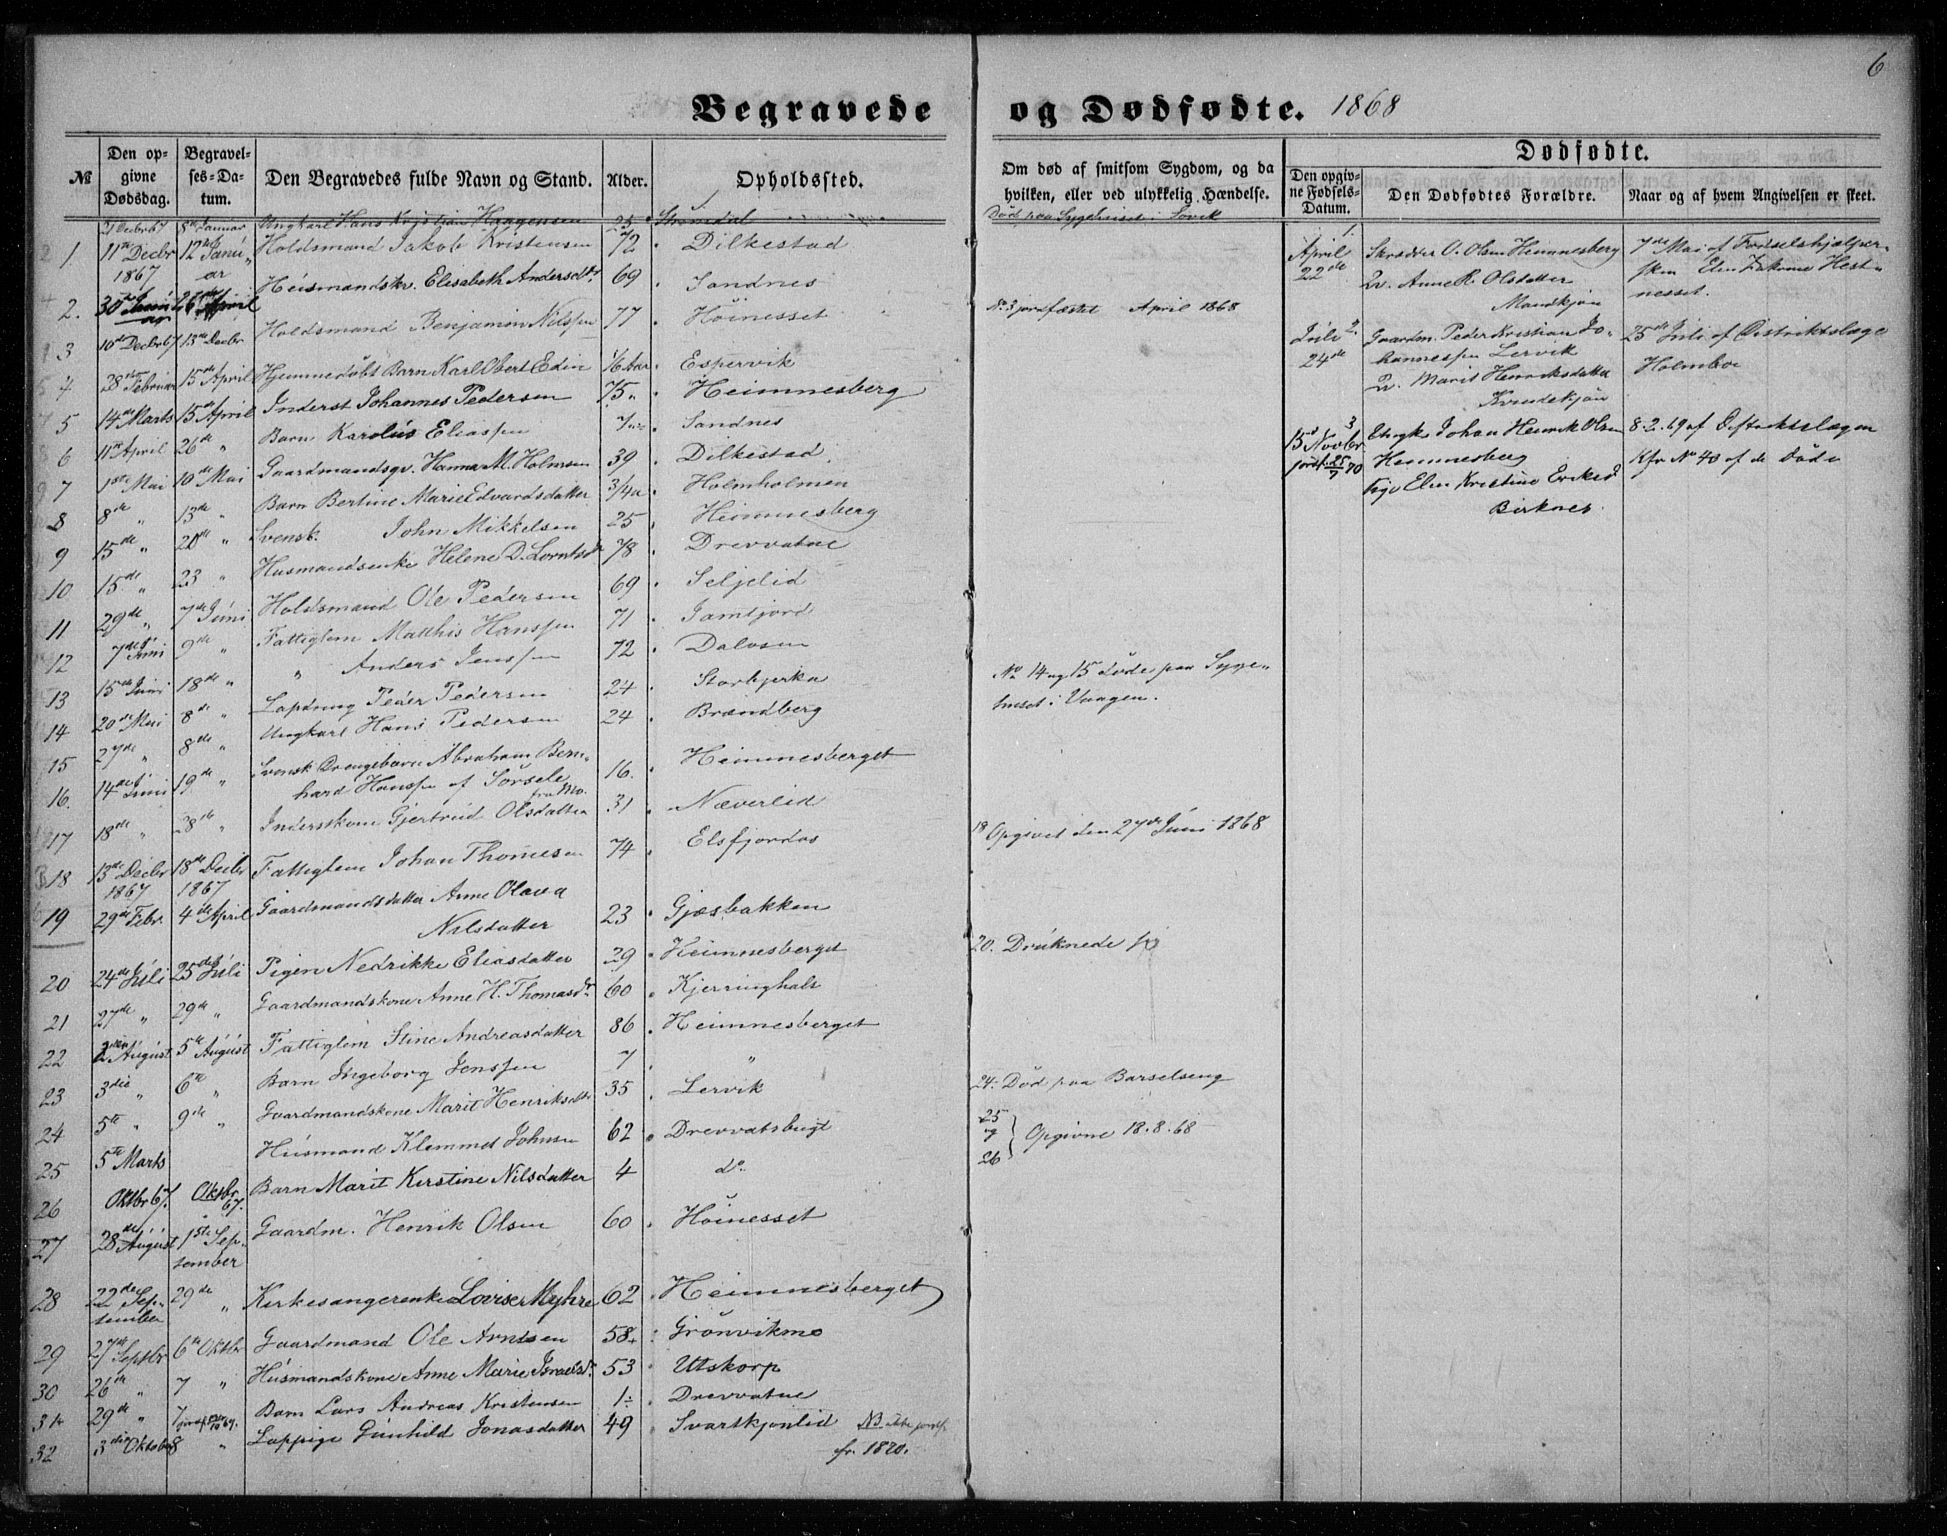 6
Begravede og Dødfødte. 1868
№
Den opgivne Dødsdag.
Begravelses-Datum.
Den Begravedes fulde Navn og Stand.
Alder.
Opholdssted.
Om død af smitsom Sygdom, og da hvilken, eller ved ulykkelig Hændelse.
Dødfødte.
Den opgivne Fødsels-Datum.
Den Dødfødtes Forældre.
Naar og af hvem Angivelsen er skeet.
21 Decbr 67 8de Januar Ungkarl Hans Kristian Haagensen 25 Strømdal Død paa Sygehuset i Lovik
1. 11te Decbr 1867 12te Januar Holdsmand Jakob Kristensen 72 Dilkestad
2. 26de April Heismandsk. Elisabeth Andersdtr 69 Sandnes
3 10de Decbr 67 13de Decbr Holdsmand Benjamin Nilssen 77 Höinesset No 3 jordfæstet April 1868
4 28de Februar 15de April Hjemmedøbt Barn Karl Obert Edin 1/6 Aar Espervik
5 14de Marts 15de April Inderst Johannes Pedersen 75 " Heimnesberg
6 11te April 26de " Barn Karolus Eliassen 7 Sandnes
7 1ste Mai 10de Mai Gaardmandsgv. Hanna M. Holmsen 39 Dilkestad
8 8de " 13de " Barn Bertine Marie Edvardsdatter 3/4 a Holmholmen
9 15de " 20de " Svensk. John Mikkelsen 25 Heimnesberg
10 15de " 23 " Husmandsenke Helene D. Lorntsdtr 78 Drevvatne
11 29de " 7de Juni Holdsmand Ole Pedersen 69 Seljelid
12 7de Juni 9de " Fattiglem Matthis Hanssen 71 Jamtjord
13 15de Juni 18de " " Anders Jenssen 72 Dalosen
14 20de Mai 8de " Lapdreng Peder Pedersen 24 Storbjerka No 14 og 15 Døde paa Sygehuset i Vaagen.
15 27de " 8de " Ungkarl Hans Pedersen 24 Brændberg
16. 14de Juni 19de " Svensk Drengebarn Abraham Bernhard Hanssen af Sorsele fra Mo. 16. Heimnesberget
17 18de " 28de " Inderstkone Gjertrud Olsdatter 31 Næverlid
18 13de Decbr 1867 18de Decbr 1867 Fattiglem Johan Thomesen 74 Elsfjordos 18 Opgivet den 27de Juni 1868
19 29de Febr. 4de April Gaardmandsdatter Anne Olava Nilsdatter 23 Gjæsbakken
20 24de Juli 25de Juli Pigen Nedrikke Eliasdatter 29 Heimnesberget 20. Druknede
21 27de " 29de " Gaardmandskone Anne H. Thomasdr 60 Kjerringhals
22 2den August 5te August Fattiglem Stine Andreasdatter 86 Heimnesberget
23 3die " 6te " Barn Ingeborg Jenssen 7 "
24 5te " 9de " Gaardmandskone Marit Henriksdtr 35 Lervik 24. Død paa Barselseng
25 5te Marts Husmand Klemmet Johnsen 62 Drevvatsbugt 25 og 26 } Opgivne 18.8.68
26 Oktbr 67. Oktbr 67. Barn Marit Kirstine Nilsdatter 4 do
27 28de August 1ste September Gaardm. Henrik Olsen 60 Höinesset
28 22de September 29de " Kirkesangerenke Lovise Myhre 62 Heimnesberget
29 27de Septbr 6te Oktbr Gaardmand Ole Arntsen 58 Grönvikmo
30 26de " 7 " Husmandskone Anne Marie Israelsdr 53 Utskorp
31 29de " 7 Barn Lars Andreas Kristensen 1 Drevvatne
32 3die Oktober 8 " Lappige Gunhild Jonasdatter 49 Svartkjønlid NB ikke jordf. før 1870.
1. April 22de Skrædder O. Olsen Hemnesberg Qv. Anne R. Olsdatter Mandkjøn 7de Mai af Fødselshjælpersken Elen Hestnesset.
2. Juli 24de Gaardm. Peder Kristian Johannessen Lervik Qv. Marit Henriksdatter Kvindekjøn 25de Juli af Distriktslæge Holmboe
3 15d Novbr. jordf. 25/7 70 Ungk. Johan Henrik Olsen Hemnesberg Pige Elen Kristine Eriksd Birknes. 8.2.69 af Distriktslægen Kfr No 40 af de Døde